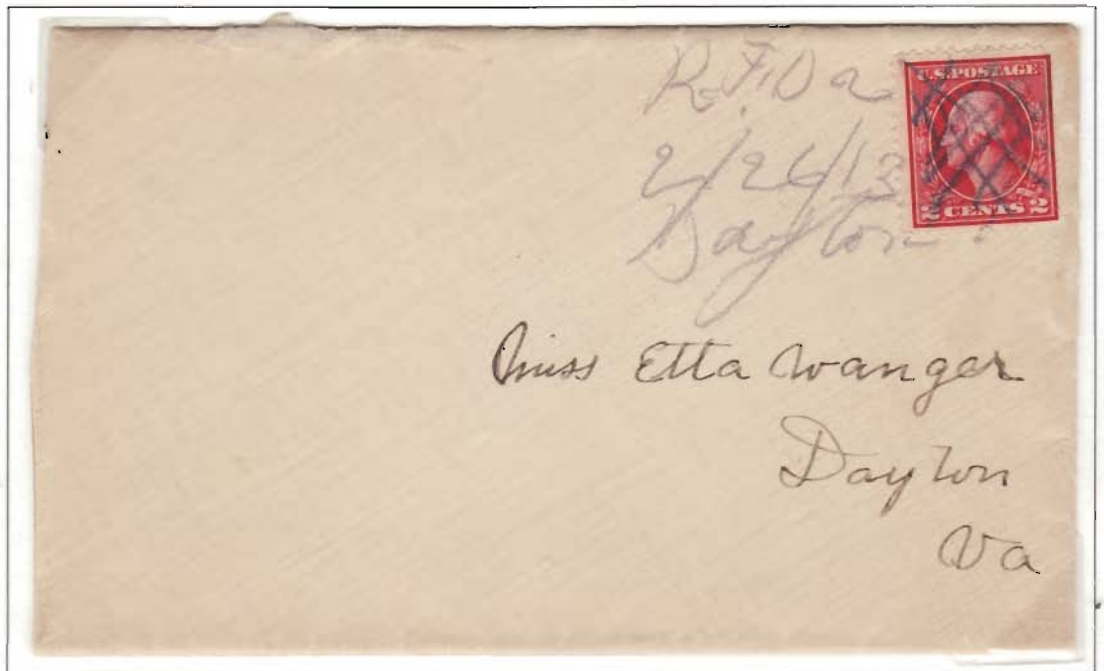 R.F.D 2
2/26/13
Dayton
U.S. POSTAGE
2 CENTS 2
Miss Etta Wanger
Dayton
Va